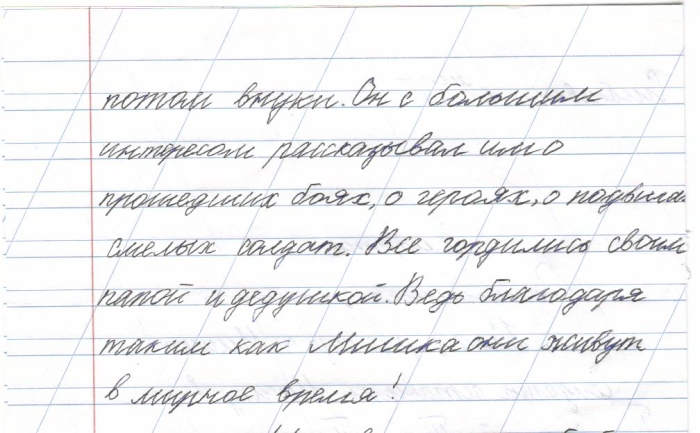 потом внуки. Он с большим
интересом рассказывал им о
прошедших боях, о героях, о подвигах
смелых солдат. Все гордились своим
папой и дедушкой. Ведь благодаря
таким как Мишка они живут
в мирное время!